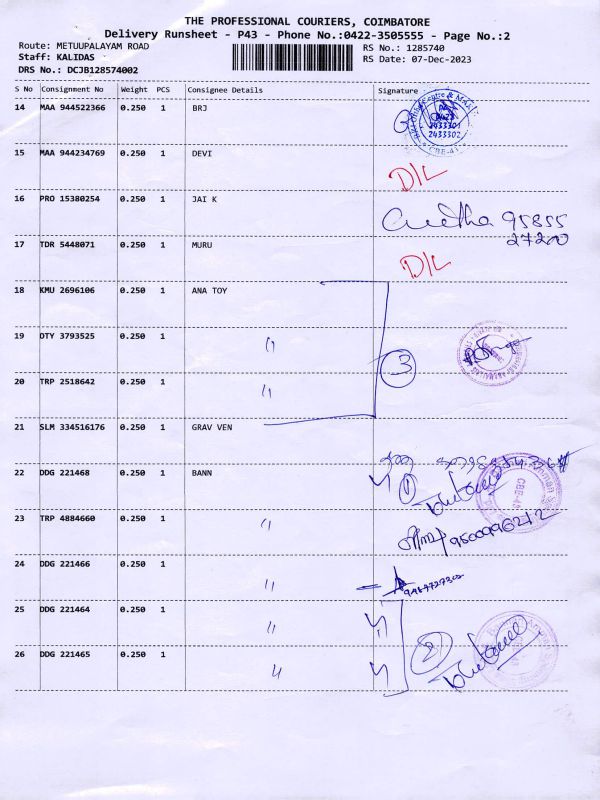 THE PROFESSIONAL COURIERS, COIMBATORE
Delivery Runsheet - P43 - Phone No.:0422-3505555 - Page No.:2
Route: METUUPALAYAM ROAD
RS No.: 1285740
Staff: KALIDAS
RS Date: 07-Dec-2023
DRS No.: DCJB128574002
S No Consignment No Weight PCS Consignee Details Signature
14 MAA 944522366 0.250 1 BRJ
2433301
2433302
CBE-43
15 MAA 944234769 0.250 1 DEVI
D/L
16 PRO 15380254 0.250 1 JAI K
95855
27200
17 TDR 5448071 0.250 1 MURU
D/L
18 KMU 2696106 0.250 1 ANA TOY
19 DTY 3793525 0.250 1 "
3
20 TRP 2518642 0.250 1 "
21 SLM 334516176 0.250 1 GRAV VEN
22 DDG 221468 0.250 1 BANN
1
CBE-43
23 TRP 4884660 0.250 1 "
9500996212
24 DDG 221466 0.250 1 "
25 DDG 221464 0.250 1 "
26 DDG 221465 0.250 1 "
2